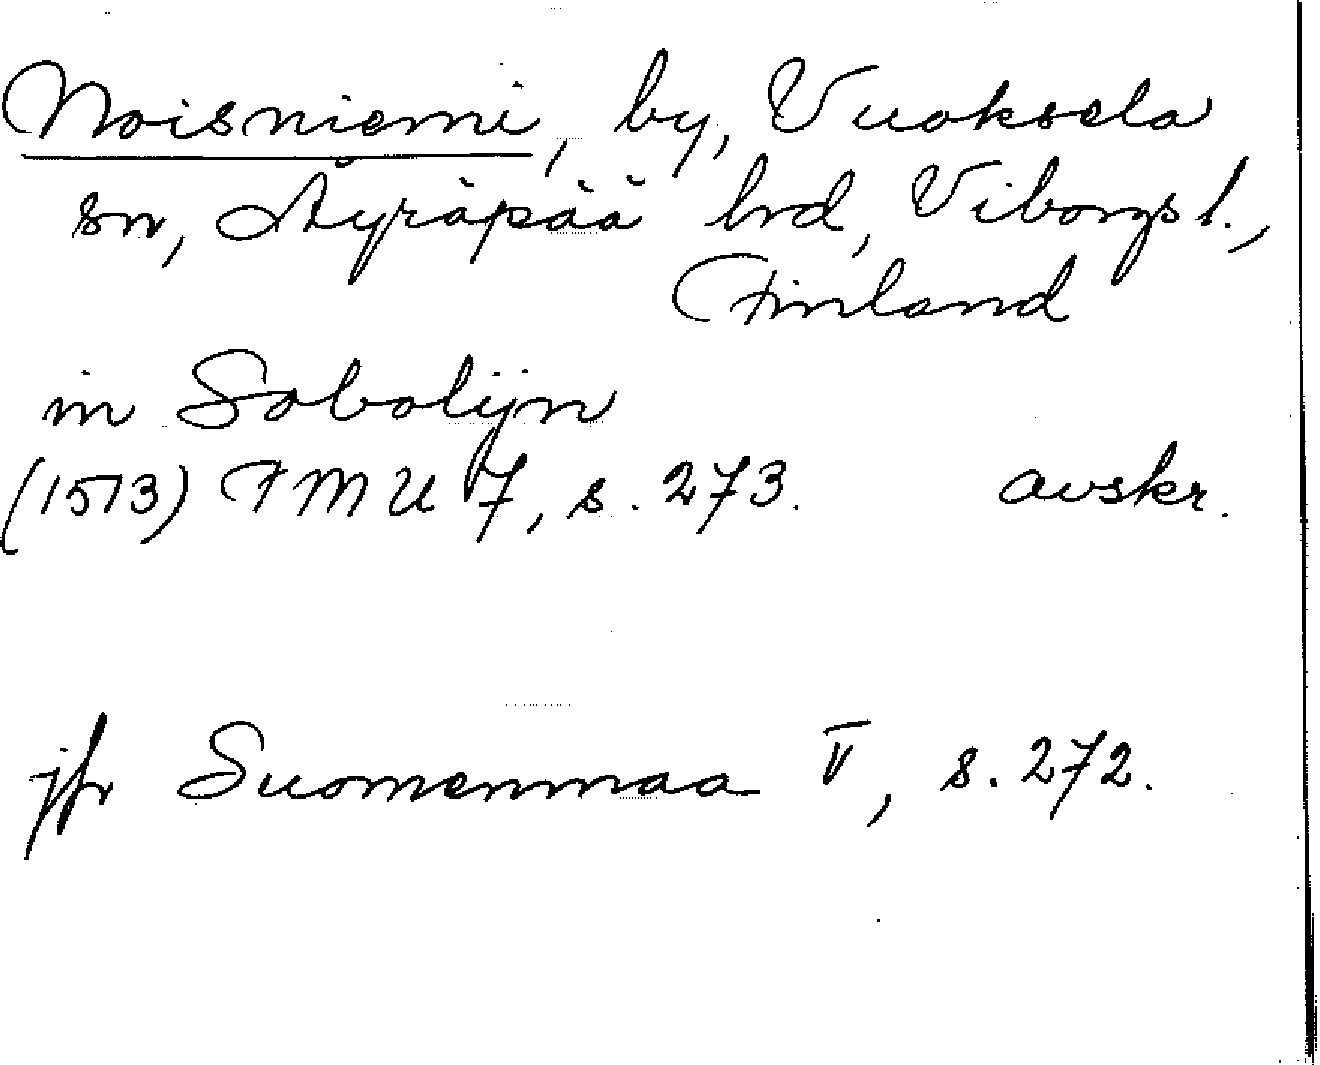 Noisniemi, by, Vuoksela
sn, Äyräpää hrd, Viborgs l.,
Finland
in Sobolijn
(1513) FMU 7, s. 273. avskr.
jfr Suomenmaa V, s. 272.